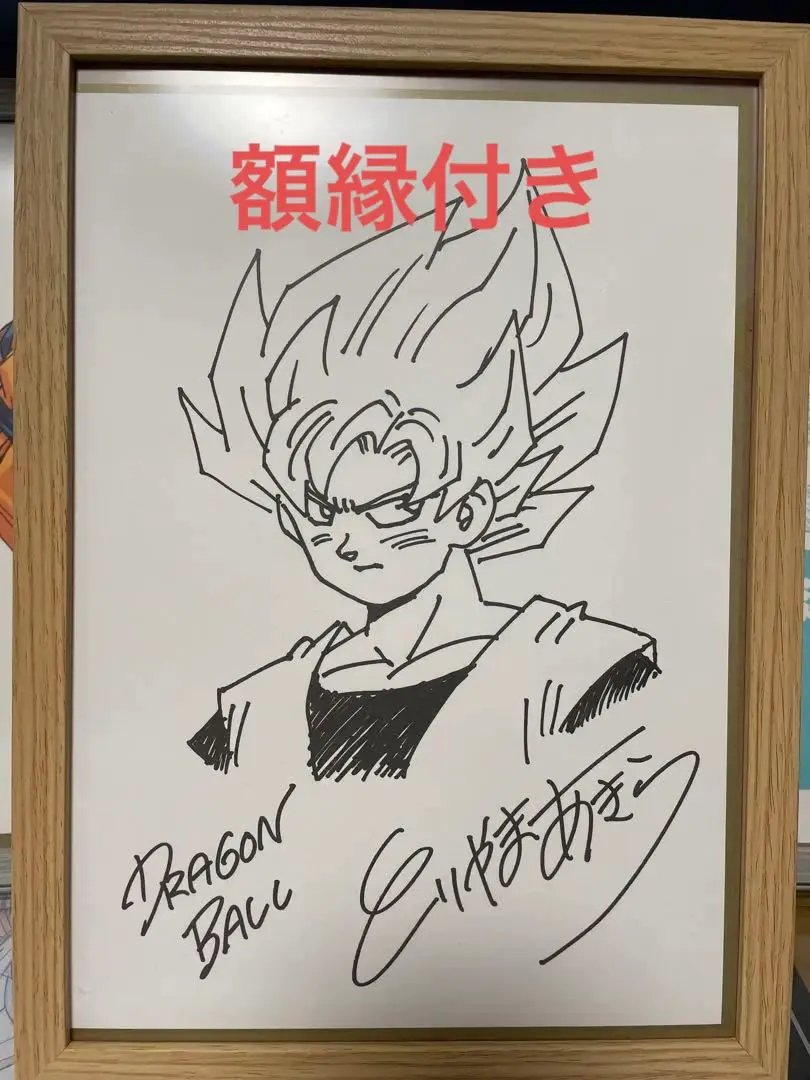 額縁付き
DRAGON
BALL
とりやまあきら